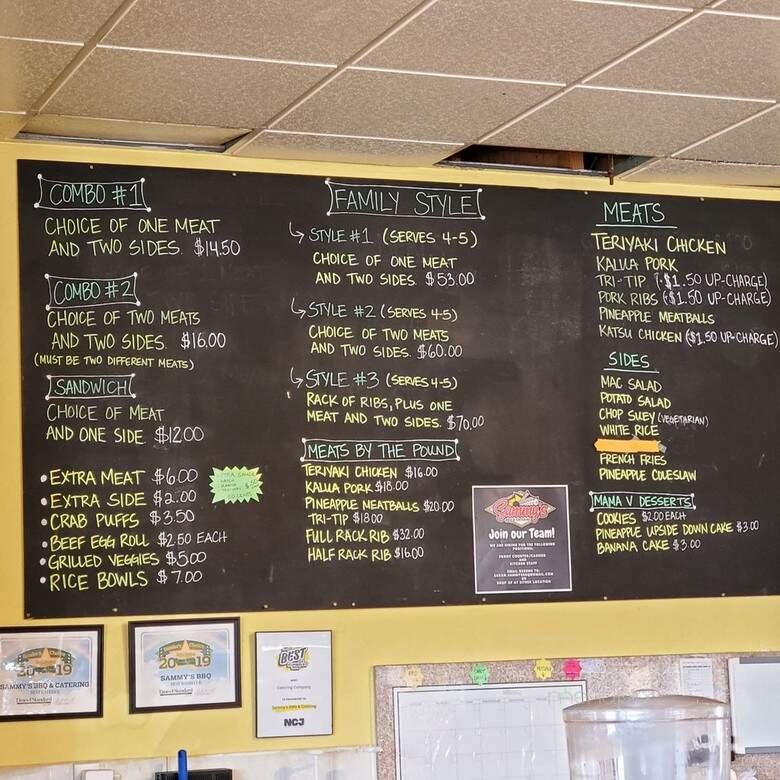 COMBO #1
CHOICE OF ONE MEAT
AND TWO SIDES. $14.50
COMBO #2
CHOICE OF TWO MEATS
AND TWO SIDES. $16.00
(MUST BE TWO DIFFERENT MEATS)
SANDWICH
CHOICE OF MEAT
AND ONE SIDE $12.00
• EXTRA MEAT $6.00
• EXTRA SIDE $2.00
• CRAB PUFFS $3.50
• BEEF EGG ROLL $2.60 EACH
• GRILLED VEGGIES $5.00
• RICE BOWLS $7.00
FAMILY STYLE
STYLE #1 (SERVES 4-5)
CHOICE OF ONE MEAT
AND TWO SIDES $53.00
STYLE #2 (SERVES 4-5)
CHOICE OF TWO MEATS
AND TWO SIDES. $60.00
STYLE #3 (SERVES 4-5)
RACK OF RIBS, PLUS ONE
MEAT AND TWO SIDES. $70.00
MEATS BY THE POUND
TERIYAKI CHICKEN $16.00
KALUA PORK $18.00
PINEAPPLE MEATBALLS $20.00
TRI-TIP $18.00
FULL RACK RIB $32.00
HALF RACK RIB $16.00
Sammy's
Join our Team!
WE ARE HIRING FOR THE FOLLOWING
POSITIONS:
FRONT COUNTER/CASHIER
AND
KITCHEN STAFF
MEATS
TERIYAKI CHICKEN
KALUA PORK
TRI-TIP ($1.50 UP-CHARGE)
PORK RIBS ($1.50 UP-CHARGE)
PINEAPPLE MEATBALLS
KATSU CHICKEN ($1.50 UP-CHARGE)
SIDES
MAC SALAD
POTATO SALAD
CHOP SUEY (VEGETARIAN)
WHITE RICE
FRENCH FRIES
PINEAPPLE COLESLAW
MAMA V DESSERTS
COOKIES $2.00 EACH
PINEAPPLE UPSIDE DOWN CAKE $3.00
BANANA CAKE $3.00
2019
SAMMY'S BBQ & CATERING
2019
SAMMY'S BBQ
BEST
Catering Company
Sammy's BBQ & Catering
NCJ